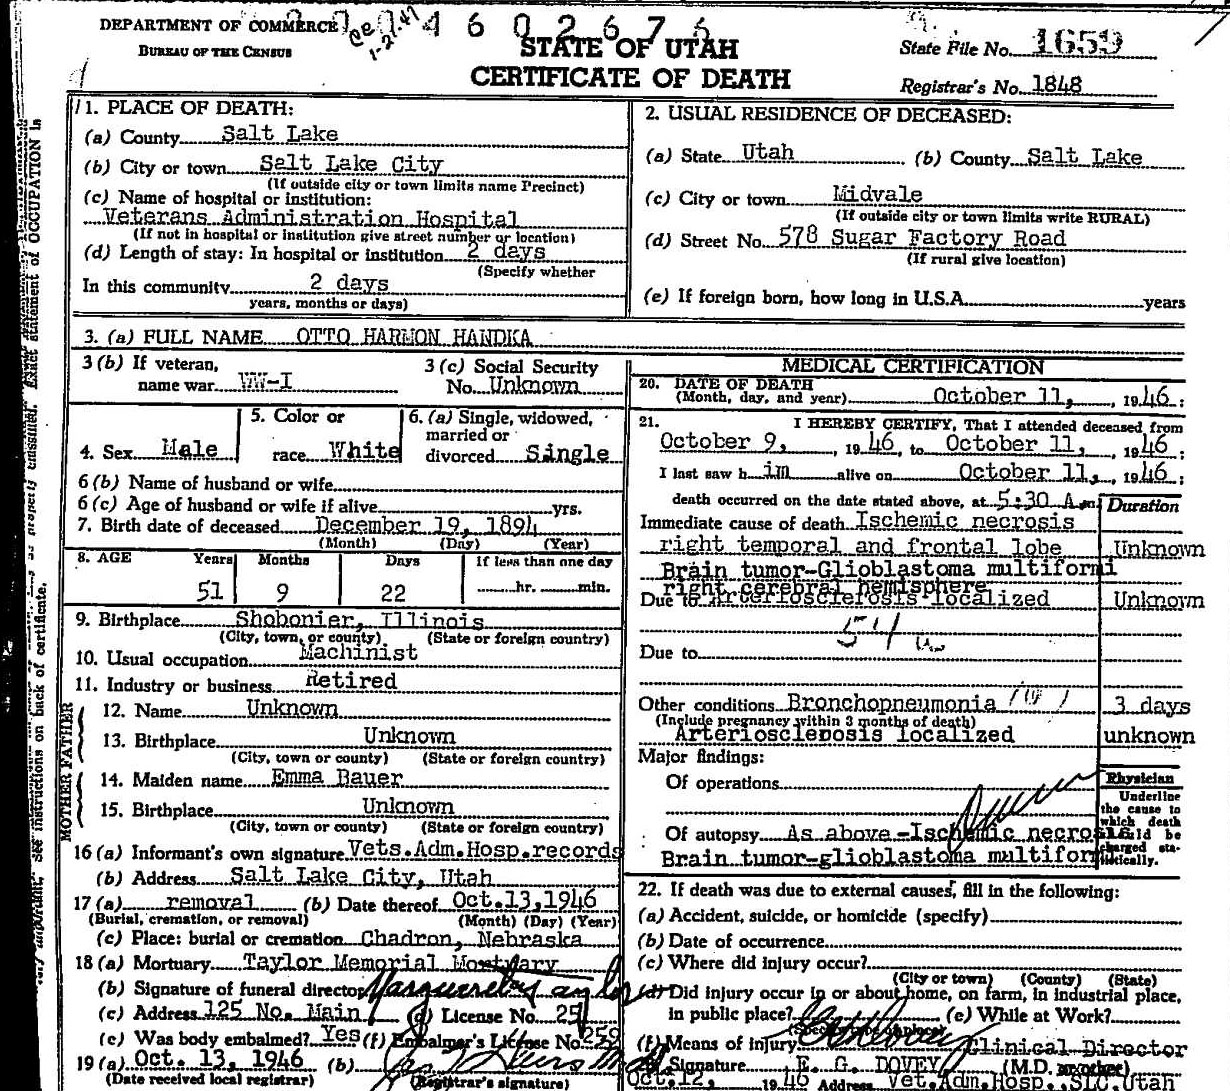 DEPARTMENT OF COMMERCE
BUREAU OF THE CENSUS
4 6 0 2 6 7 6
1-21-47
STATE OF UTAH
CERTIFICATE OF DEATH
State File No. 1659
Registrar's No. 1848
1. PLACE OF DEATH:
(a) County Salt Lake
(b) City or town Salt Lake City
(If outside city or town limits name Precinct)
(c) Name of hospital or institution:
Veterans Administration Hospital
(If not in hospital or institution give street number or location)
(d) Length of stay: In hospital or institution 2 days
(Specify whether
In this community 2 days
years, months or days)
2. USUAL RESIDENCE OF DECEASED:
(a) State Utah (b) County Salt Lake
(c) City or town Midvale
(If outside city or town limits write RURAL)
(d) Street No. 578 Sugar Factory Road
(If rural give location)
(e) If foreign born, how long in U.S.A. years
3. (a) FULL NAME OTTO HARMON HANDKA
3 (b) If veteran,
name war WW-I
3 (c) Social Security
No. Unknown
4. Sex Male
5. Color or
race White
6. (a) Single, widowed,
married or
divorced Single
6 (b) Name of husband or wife
6 (c) Age of husband or wife if alive yrs.
7. Birth date of deceased December 19, 1894
(Month) (Day) (Year)
8. AGE Years Months Days If less than one day
51 9 22 hr. min.
9. Birthplace Shobonier, Illinois
(City, town, or county) (State or foreign country)
10. Usual occupation Machinist
11. Industry or business Retired
FATHER
12. Name Unknown
13. Birthplace Unknown
(City, town or county) (State or foreign country)
MOTHER
14. Maiden name Emma Bauer
15. Birthplace Unknown
(City, town or county) (State or foreign country)
16 (a) Informant's own signature Vets.Adm.Hosp.records
(b) Address Salt Lake City, Utah
17 (a) removal (b) Date thereof Oct.13,1946
(Burial, cremation, or removal) (Month) (Day) (Year)
(c) Place: burial or cremation Chadron, Nebraska
18 (a) Mortuary Taylor Memorial Mortuary
(b) Signature of funeral director Marguerite Taylor
(c) Address 125 No. Main (d) License No. 25
(e) Was body embalmed? Yes (f) Embalmer's License No. 259
19 (a) Oct. 13, 1946 (b)
(Date received local registrar) (Registrar's signature)
MEDICAL CERTIFICATION
20. DATE OF DEATH
(Month, day, and year) October 11, , 1946;
21. I HEREBY CERTIFY, That I attended deceased from
October 9, , 1946, to October 11, , 1946;
I last saw him alive on October 11, , 1946;
death occurred on the date stated above, at 5:30 A.m.
Duration
Immediate cause of death Ischemic necrosis
right temporal and frontal lobe Unknown
Brain tumor-Glioblastoma multiformi
right cerebral hemisphere
Due to Arteriosclerosis localized Unknown
54
Due to
Other conditions Bronchopneumonia 3 days
(Include pregnancy within 3 months of death)
Arteriosclerosis localized unknown
Major findings:
Of operations
Of autopsy As above-Ischemic necrosis
Brain tumor-glioblastoma multiform
Physician
Underline
the cause to
which death
should be
charged sta-
tistically.
22. If death was due to external causes, fill in the following:
(a) Accident, suicide, or homicide (specify)
(b) Date of occurrence
(c) Where did injury occur?
(City or town) (County) (State)
(d) Did injury occur in or about home, on farm, in industrial place,
in public place? (e) While at Work?
(Specify type of place)
(f) Means of injury Clinical Director
Signature E. G. DOVEY (M.D. or other)
Oct.12, 1946 Address Vet.Adm.Hosp., SLC, Utah
Exact statement of OCCUPATION is
See instructions on back of certificate.